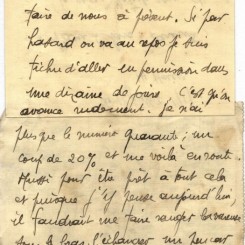 faire de nous à présent. Si par
hasard on va au repos je suis
fichu d'aller en permission dans
une dizaine de jours. C'est qu'on
avance rudement. je n'ai
plus que le numéro quarante ; un
coup de 20% et me voilà en route.
Aussi pour être prêt à tout cela
et puisque j'y pense aujourd'hui,
il faudrait me faire ranger